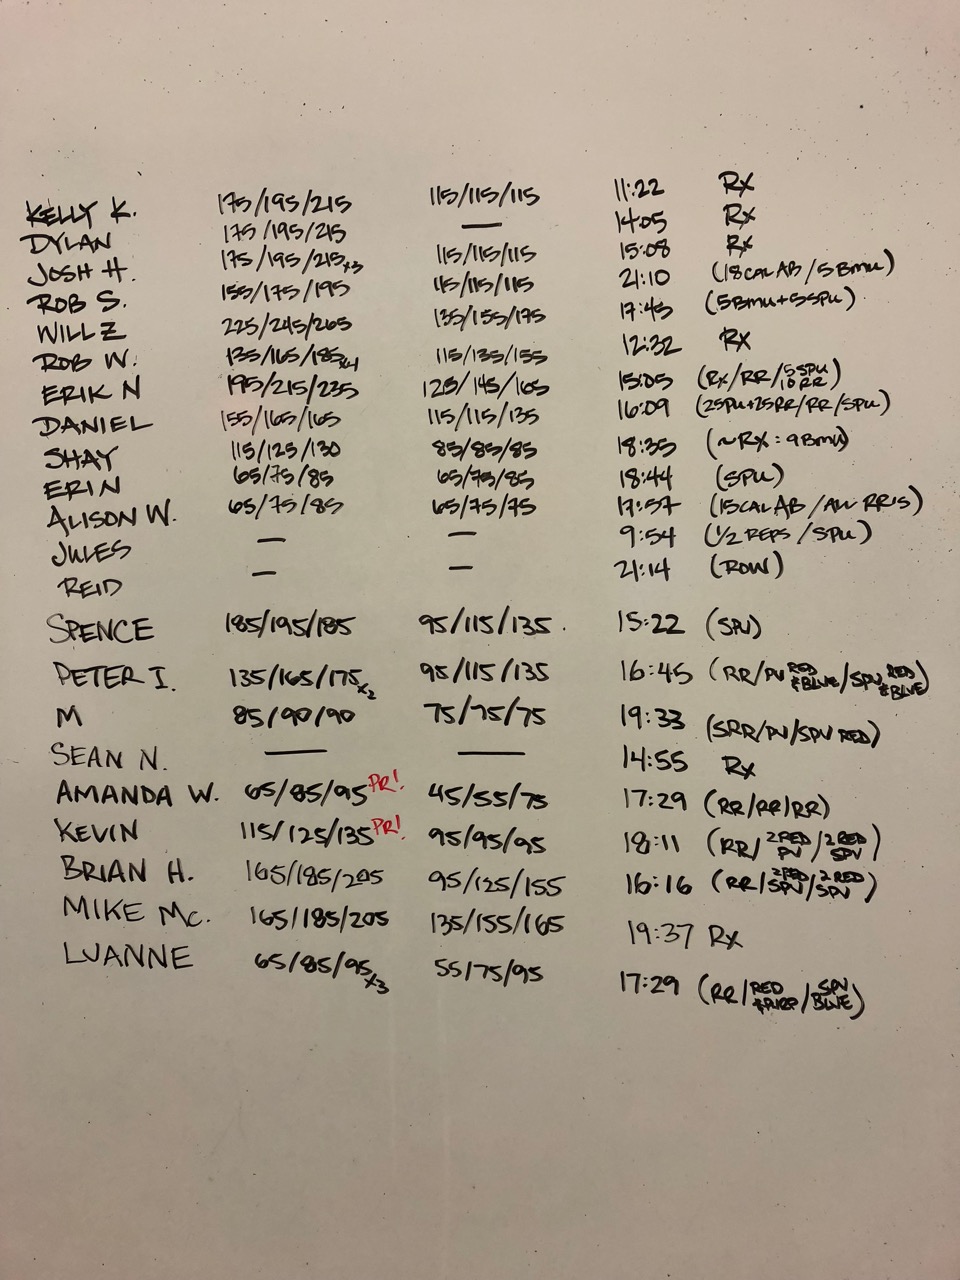 KELLY K. 175/195/215 115/115/115 11:22 RX
DYLAN 175/195/215 — 14:05 RX
JOSH H. 175/195/215 x3 115/115/115 15:08 RX
ROB S. 155/175/195 115/115/115 21:10 (18 CAL AB/5 BMU)
WILL Z 225/245/265 135/155/175 17:45 (5 BMU + 5 SPU)
ROB W. 135/165/185 x4 115/135/155 12:32 RX
ERIK N 195/215/235 125/145/165 15:05 (RX/RR/5 SPU 10 RR)
DANIEL 155/165/165 115/115/135 16:09 (25PU+25RR/RR/SPU)
SHAY 115/125/130 85/85/85 18:35 (~RX: 9 BMU)
ERIN 65/75/85 65/75/85 18:44 (SPU)
ALISON W. 65/75/85 65/75/75 17:57 (15 CAL AB/ALL RR'S)
JULES — — 9:54 (1/2 REPS/SPU)
REID — — 21:14 (ROW)
SPENCE 185/195/185 95/115/135. 15:22 (SPU)
PETER I. 135/165/175 x2 95/115/135 16:45 (RR/PU RED & BLUE/SPU RED & BLUE)
M 85/90/90 75/75/75 19:33 (SRR/PU/SPU RED)
SEAN N. — — 14:55 RX
AMANDA W. 65/85/95 PR! 45/55/75 17:29 (RR/RR/RR)
KEVIN 115/125/135 PR! 95/95/95 18:11 (RR/2 RED PU/2 RED SPU)
BRIAN H. 165/185/205 95/125/155 16:16 (RR/2 RED SPU/2 RED SPU)
MIKE MC. 165/185/205 135/155/165 19:37 RX
LUANNE 65/85/95 x3 55/75/95 17:29 (RR/RED & PURP/SPU BLUE)